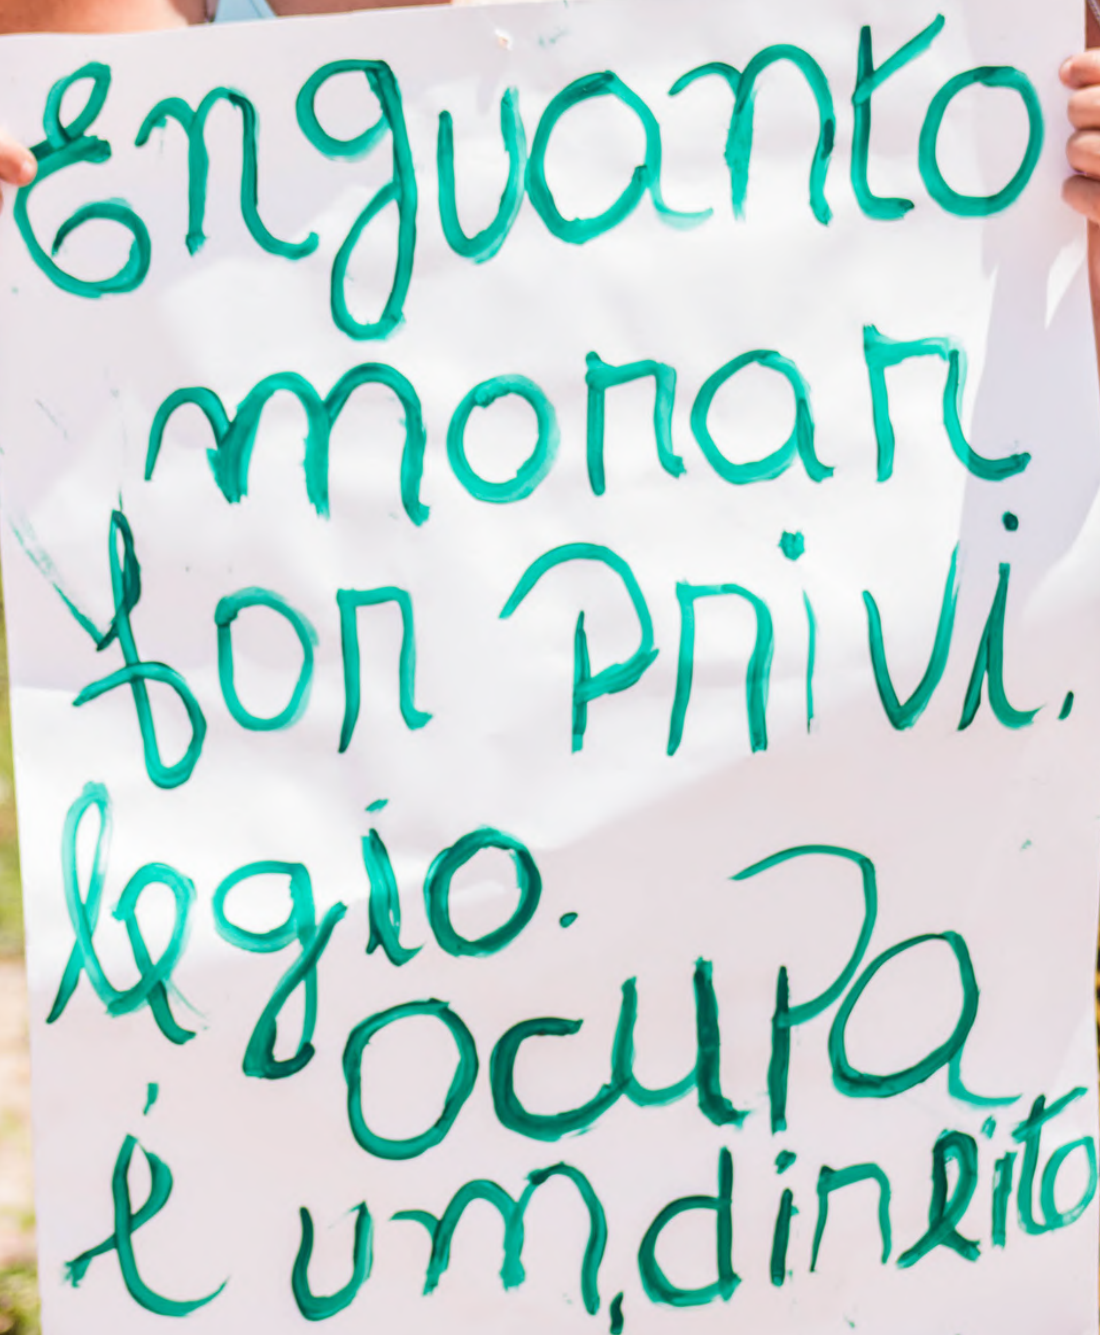 Enguanto
morar
for Privi.
legio.
ocupa
é um, direito